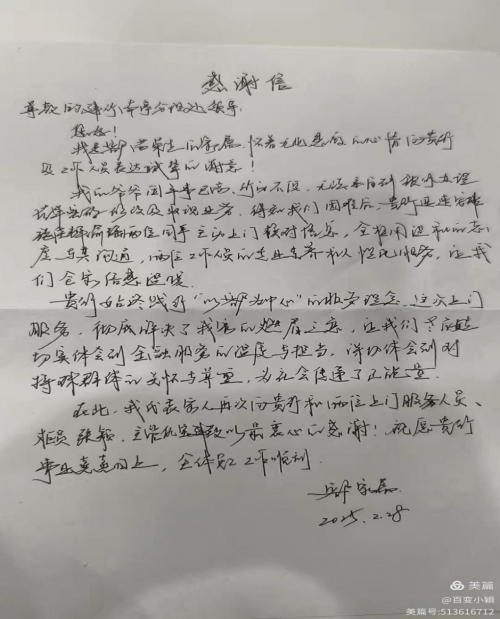 感谢信
尊敬的建行 分理处领导:
您好!
我是 的家属,怀着无比感激的心情向贵行
及工作人员表达诚挚的谢意!
我的爷爷因年事已高,行动不便,无法亲自到 办理
业务,得知我们困难后,贵行迅速安排
两位同事主动上门核对信息,全程用温和的态
度与其沟通,两位工作人员的专业素养和人性化服务,让我
们全家倍感温暖。
贵行始终践行“以客户为中心”的服务理念,这次上门
服务,彻底解决了我家的燃眉之急,让我们
切实体会到金融服务的温度与担当,深切体会到对
特殊群体的关怀与尊重,为社会传递了正能量。
在此,我代表家人再次向贵行和两位上门服务人员、
柜员张颖、主管 致以最衷心的感谢!祝愿贵行
事业蒸蒸日上,全体员工工作顺利
2025.2.28
美篇
@百变小颖
美篇号:513616712